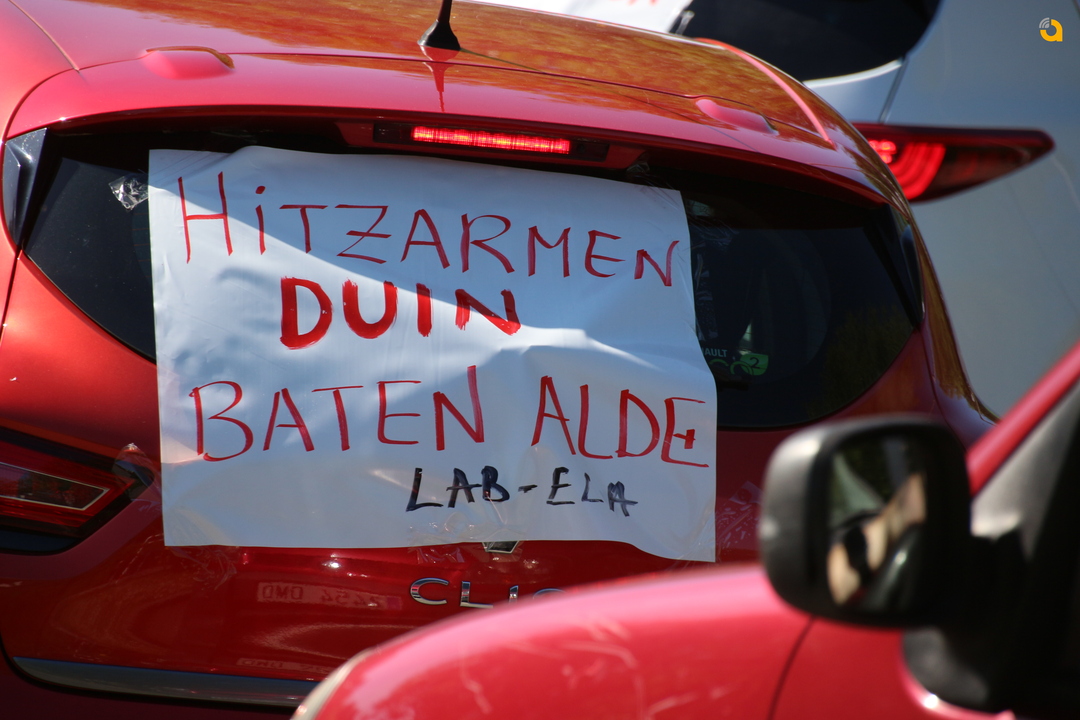 HiTZARMEN
DUIN
BATEN ALDE
LAB-ELA
CLIO